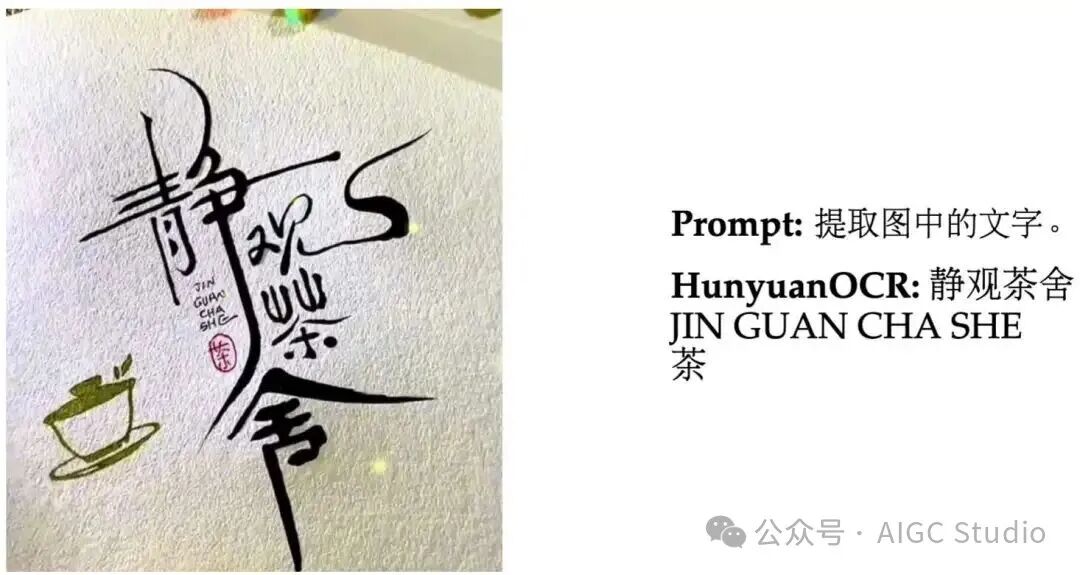 静观茶舍
JIN
GUAN
CHA
SHE
茶
Prompt: 提取图中的文字。
HunyuanOCR: 静观茶舍
JIN GUAN CHA SHE
茶
公众号· AIGC Studio